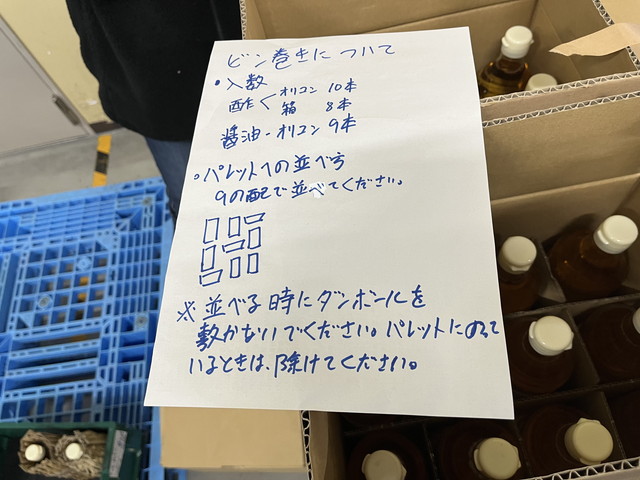 ビン巻きについて
・入数
酢 < オリコン 10本
箱 8本
醤油 - オリコン 9本
○パレットへの並べ方
9の配で並べてください。
※並べる時にダンボールを
敷かないでください。パレットにのって
いるときは、除けてください。